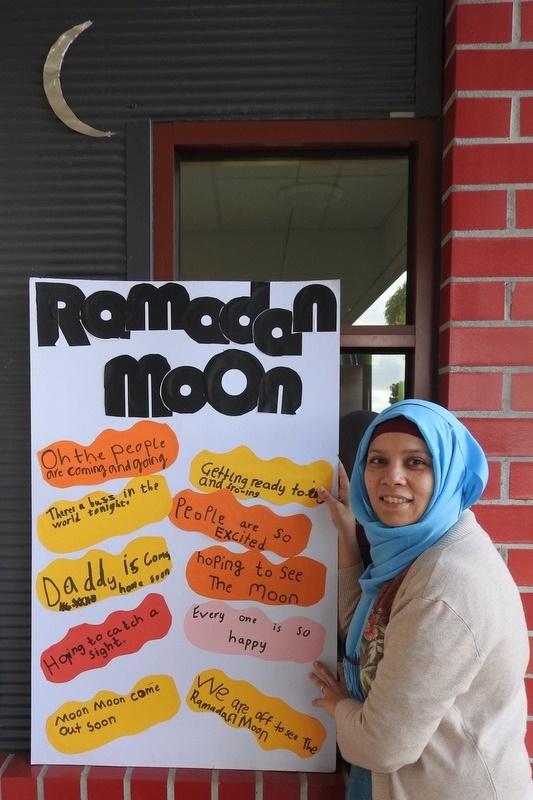 Ramadan
moon
Oh the People
are coming and going
Getting ready to-ing
and fro-ing
There's a buzz in the
world tonight.
People are so
EXCITED
Daddy is Coming
home soon
hoping to see
The Moon
Hoping to catch a
sight.
Every one is so
happy
Moon Moon come
out soon
We are off to see the
Ramadan Moon